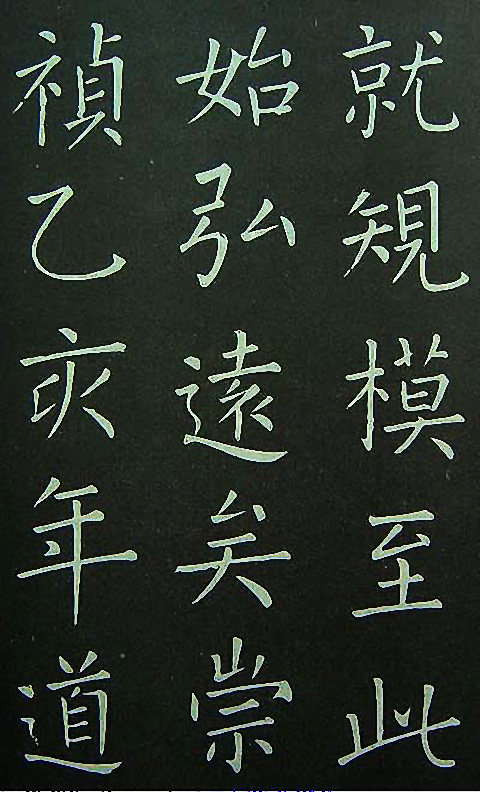 就䂓模至此
始弘遠矣崇
禎乙亥年道